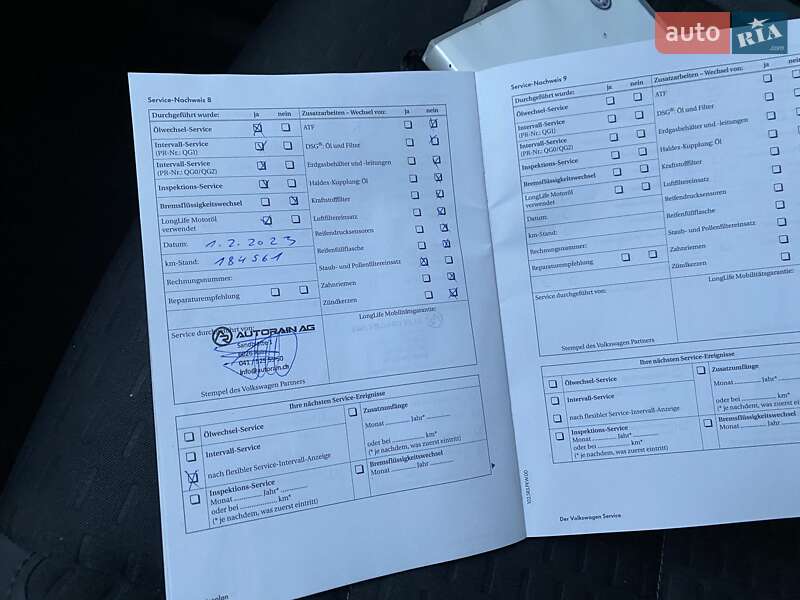 auto RIA .com
Service-Nachweis 8
Durchgeführt wurde: ja nein
Ölwechsel-Service
Intervall-Service
(PR-Nr.: QG1)
Intervall-Service
(PR-Nr.: QG0/QG2)
Inspektions-Service
Bremsflüssigkeitswechsel
LongLife Motoröl
verwendet
Datum: 1.2.2023
km-Stand: 184561
Rechnungsnummer:
Reparaturempfehlung
Zusatzarbeiten – Wechsel von: ja nein
ATF
DSG®: Öl und Filter
Erdgasbehälter und -leitungen
Haldex-Kupplung: Öl
Kraftstofffilter
Luftfiltereinsatz
Reifendrucksensoren
Reifenfüllflasche
Staub- und Pollenfiltereinsatz
Zahnriemen
Zündkerzen
Service durchgeführt von:
AUTORAIN AG
info@autorain.ch
Stempel des Volkswagen Partners
LongLife Mobilitätsgarantie:
Ihre nächsten Service-Ereignisse
Ölwechsel-Service
Intervall-Service
nach flexibler Service-Intervall-Anzeige
Inspektions-Service
Monat ............ Jahr* ............
oder bei ................ km*
(* je nachdem, was zuerst eintritt)
Zusatzumfänge
Monat ............ Jahr* ............
oder bei ................ km*
(* je nachdem, was zuerst eintritt)
Bremsflüssigkeitswechsel
Monat ............ Jahr ............
Service-Nachweis 9
Durchgeführt wurde: ja nein
Ölwechsel-Service
Intervall-Service
(PR-Nr.: QG1)
Intervall-Service
(PR-Nr.: QG0/QG2)
Inspektions-Service
Bremsflüssigkeitswechsel
LongLife Motoröl
verwendet
Datum:
km-Stand:
Rechnungsnummer:
Reparaturempfehlung
Zusatzarbeiten – Wechsel von: ja nein
ATF
DSG®: Öl und Filter
Erdgasbehälter und -leitungen
Haldex-Kupplung: Öl
Kraftstofffilter
Luftfiltereinsatz
Reifendrucksensoren
Reifenfüllflasche
Staub- und Pollenfiltereinsatz
Zahnriemen
Zündkerzen
Service durchgeführt von:
LongLife Mobilitätsgarantie:
Stempel des Volkswagen Partners
Ihre nächsten Service-Ereignisse
Ölwechsel-Service
Intervall-Service
nach flexibler Service-Intervall-Anzeige
Inspektions-Service
Monat ............ Jahr* ............
oder bei ................ km*
(* je nachdem, was zuerst eintritt)
Zusatzumfänge
Monat ............ Jahr*
oder bei ................ km*
(* je nachdem, was zuerst
Bremsflüssigkeitswechsel
Monat ............ Jahr
Der Volkswagen Service